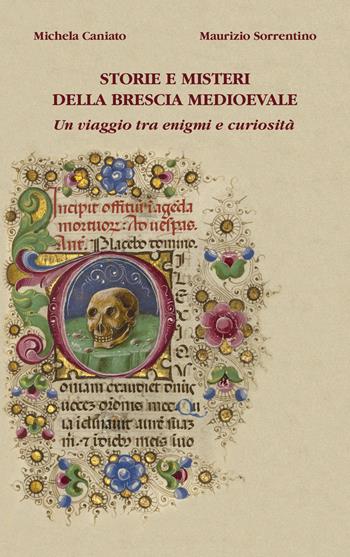 Michela Caniato
Maurizio Sorrentino
STORIE E MISTERI
DELLA BRESCIA MEDIOEVALE
Un viaggio tra enigmi e curiosità
Incipit offitiũ i agẽda
mortuoꝝ: Ad uespas.
Ant. Placebo domino.
oniam exaudiet dñs
uocez orõnis mee Qu
ia iclinauit aurẽ suaz
m. ⁊ ĩ dieb meis iuo